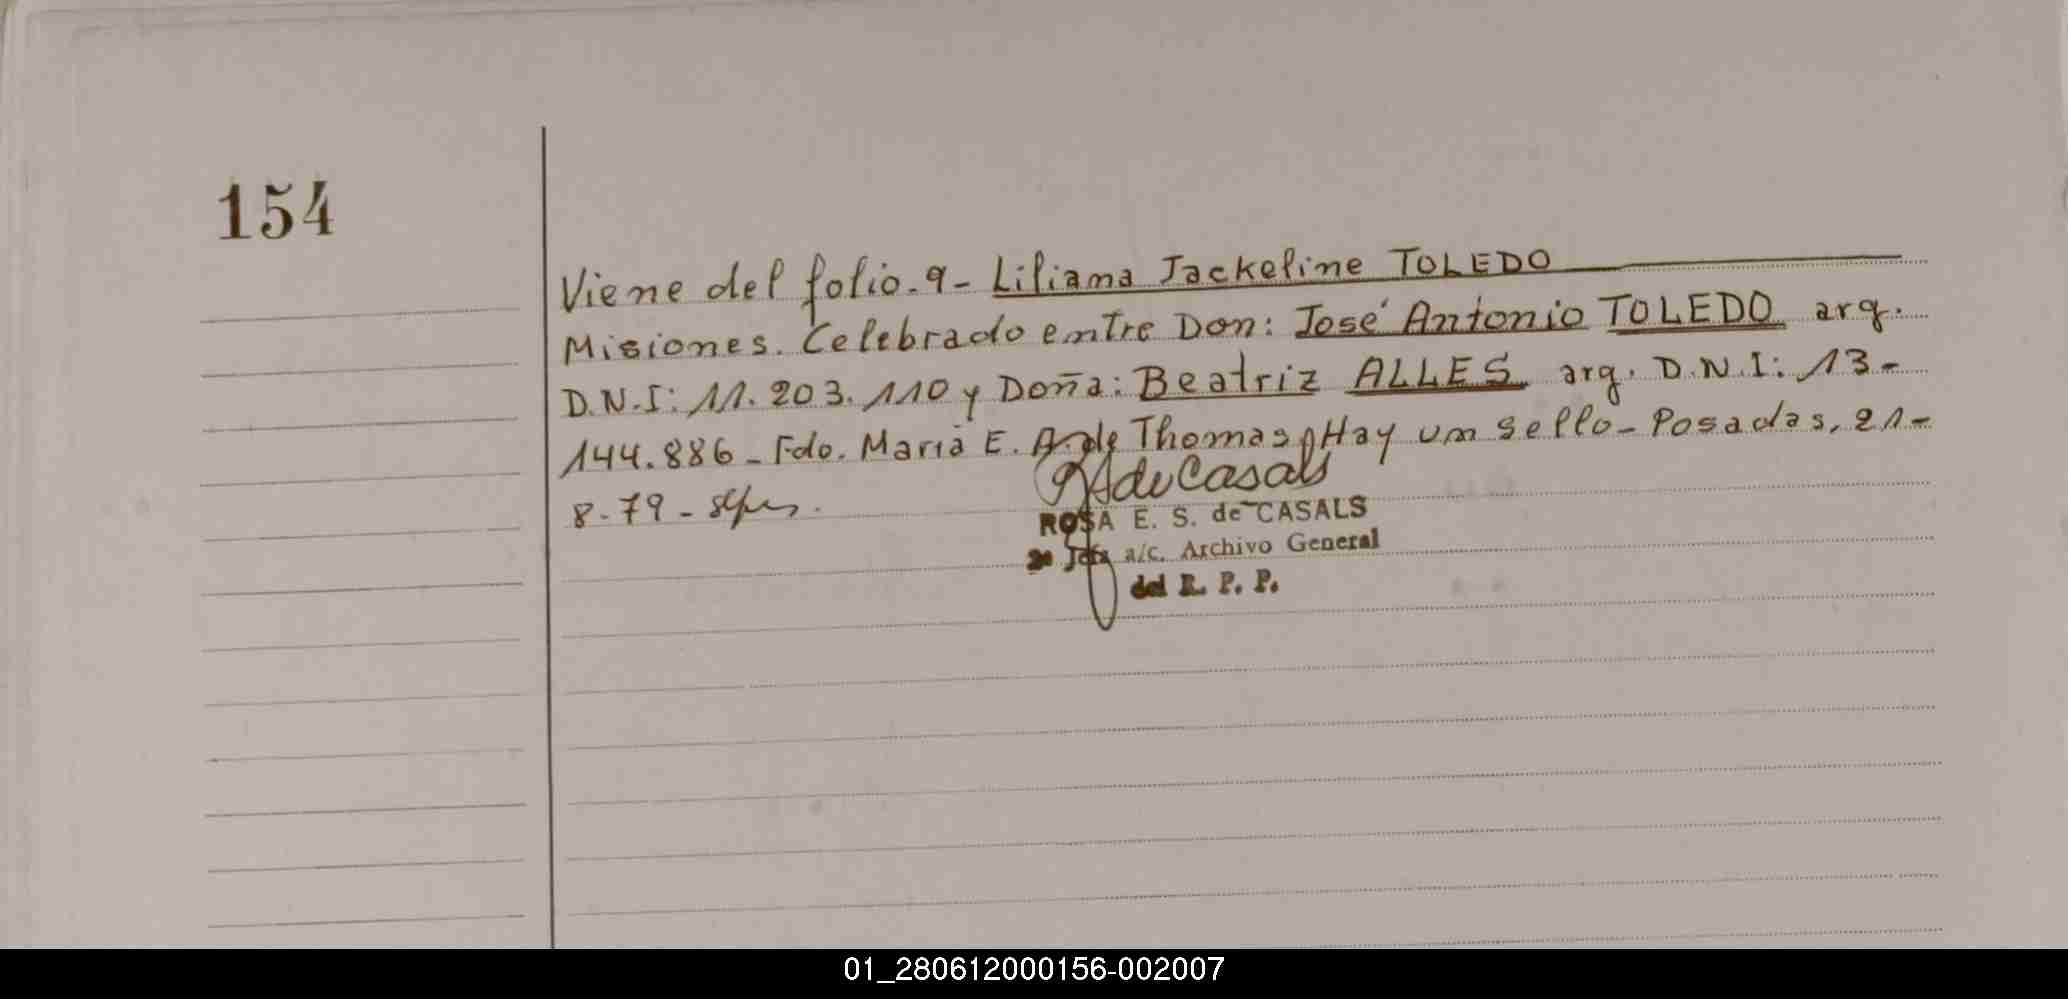 154
Viene del folio.9- Liliana Jackeline TOLEDO
Misiones. Celebrado entre Don: José Antonio TOLEDO arg.
D.N.I: 11.203.110 y Doña: Beatriz ALLES arg. D.N.I: 13-
144.886 - Fdo. Maria E. A. de Thomas, Hay un sello - Posadas, 21-
8-79 -
de Casals
ROSA E. S. de CASALS
Jefa a/c. Archivo General
del R. P. P.
01_280612000156-002007